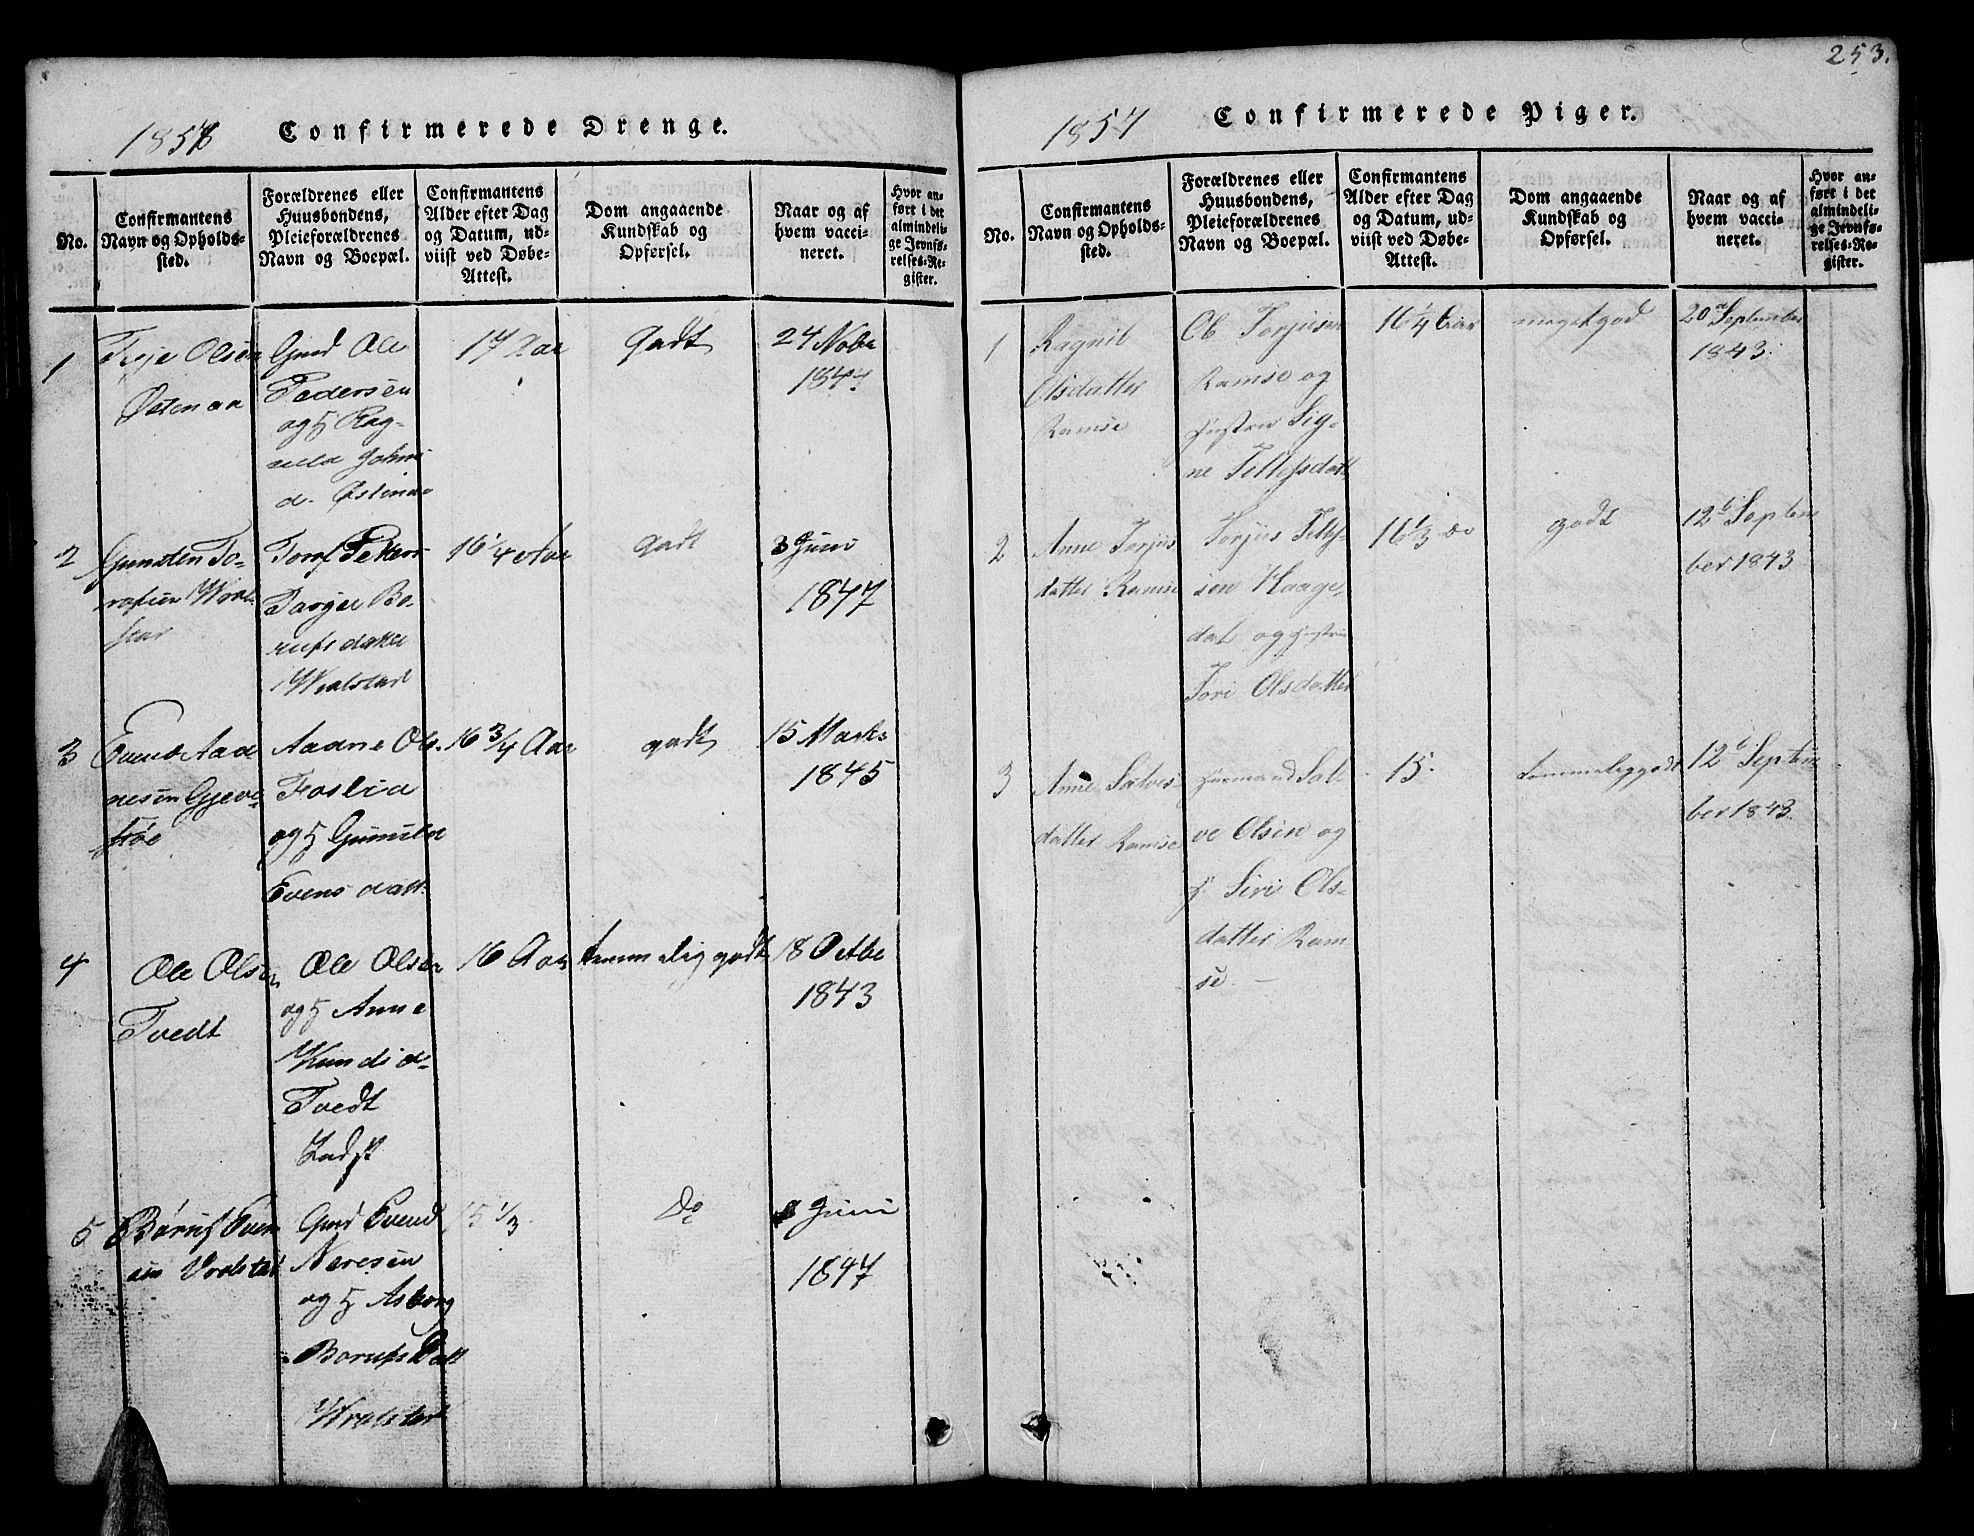 253.
1858 Confirmerede Drenge.
No.
Confirmantens Navn og Opholds-sted.
Forældrenes eller Huusbondens, Pleieforældrenes Navn og Boepæl.
Confirmantens Alder efter Dag og Datum, ud-viist ved Døbe-Attest.
Dom angaaende Kundskab og Opførsel.
Naar og af hvem vacci-neret.
Hvor an-ført i det almindeli-ge Jevnfø-relses-Re-gister.
1
Terje Olsen
Østenaa
Gmd Ole
Pedersen
og h Rag-
nild
d. Østenaa
17 Aar
godt
24 Novbr
1844
2
Gunsten To-
rofsen Wral-
stad
Torof
Targer Bo-
rufsdatter
Wralstad
16 1/4 Aar
godt
3 Juni
1847
3
Evend Aad
nesen Gjeve-
støe
Aadne Ols.
Foslia
og h Gunild
Evens datt.
16 3/4 Aar
godt
15 Marts
1845
4
Ole Olsen
Tvedt
Ole Olsen
og h Anne
d-
Tvedt
Ladst
16 Aar
temmelig godt
18 Octbr
1843
5
Boruf Even
sen Vralstad
Gmd Evend
Neresen
og h Asborg
Borufs Datt
Wralstad
15 1/3
Do
Juni
1847
1857 Confirmerede Piger.
No.
Confirmantens Navn og Opholds-sted.
Forældrenes eller Huusbondens, Pleieforældrenes Navn og Boepæl.
Confirmantens Alder efter Dag og Datum, ud-viist ved Døbe-Attest.
Dom angaaende Kundskab og Opførsel.
Naar og af hvem vacci-neret.
Hvor an-ført i det almindeli-ge Jevnfø-relses-Re-gister.
1
Ragnil
Olsdatter
Ramse
Ole Torjusen
Ramse og
Hustru Sig-
ne Tellefsdatt
16 1/4 Aar
meget god
20 September
1843.
2
Anne Torjus
datter Ramse
Torjus Tellef
sen Haage-
dal og Hustru
Tori Olsdatter
16 1/3 do
godt
12t Septem
ber 1843
3
Anne Salves-
datter Ramse
Huusmand Sal-
ve Olsen og
h. Siri Ols-
datter Ram-
se.
15.
temmelig godt
12t Septem
ber 1843.